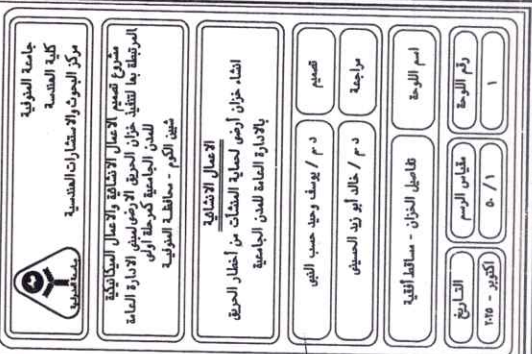 جامعة المنوفية
كلية الهندسة
مركز البحوث والاستشارات الهندسية
مشروع تصميم الاعمال الانشائية والاعمال الميكانيكية
المرتبطة بها لتنفيذ خزان الحريق الارضى لمبنى الادارة العامة
للمدن الجامعية كمرحلة أولى
شبين الكوم - محافظة المنوفية
الاعمال الانشائية
انشاء خزان أرضى لحماية المنشآت من أخطار الحريق
بالادارة العامة للمدن الجامعية
تصميم
د م / يوسف وحيد حسب النبى
مراجعة
د م / خالد أبو زيد الحسينى
اسم اللوحة
تفاصيل الخزان - مساقط أفقية
رقم اللوحة
١
مقياس الرسم
١ / ٥٠
التاريخ
اكتوبر - ٢٠٢٥